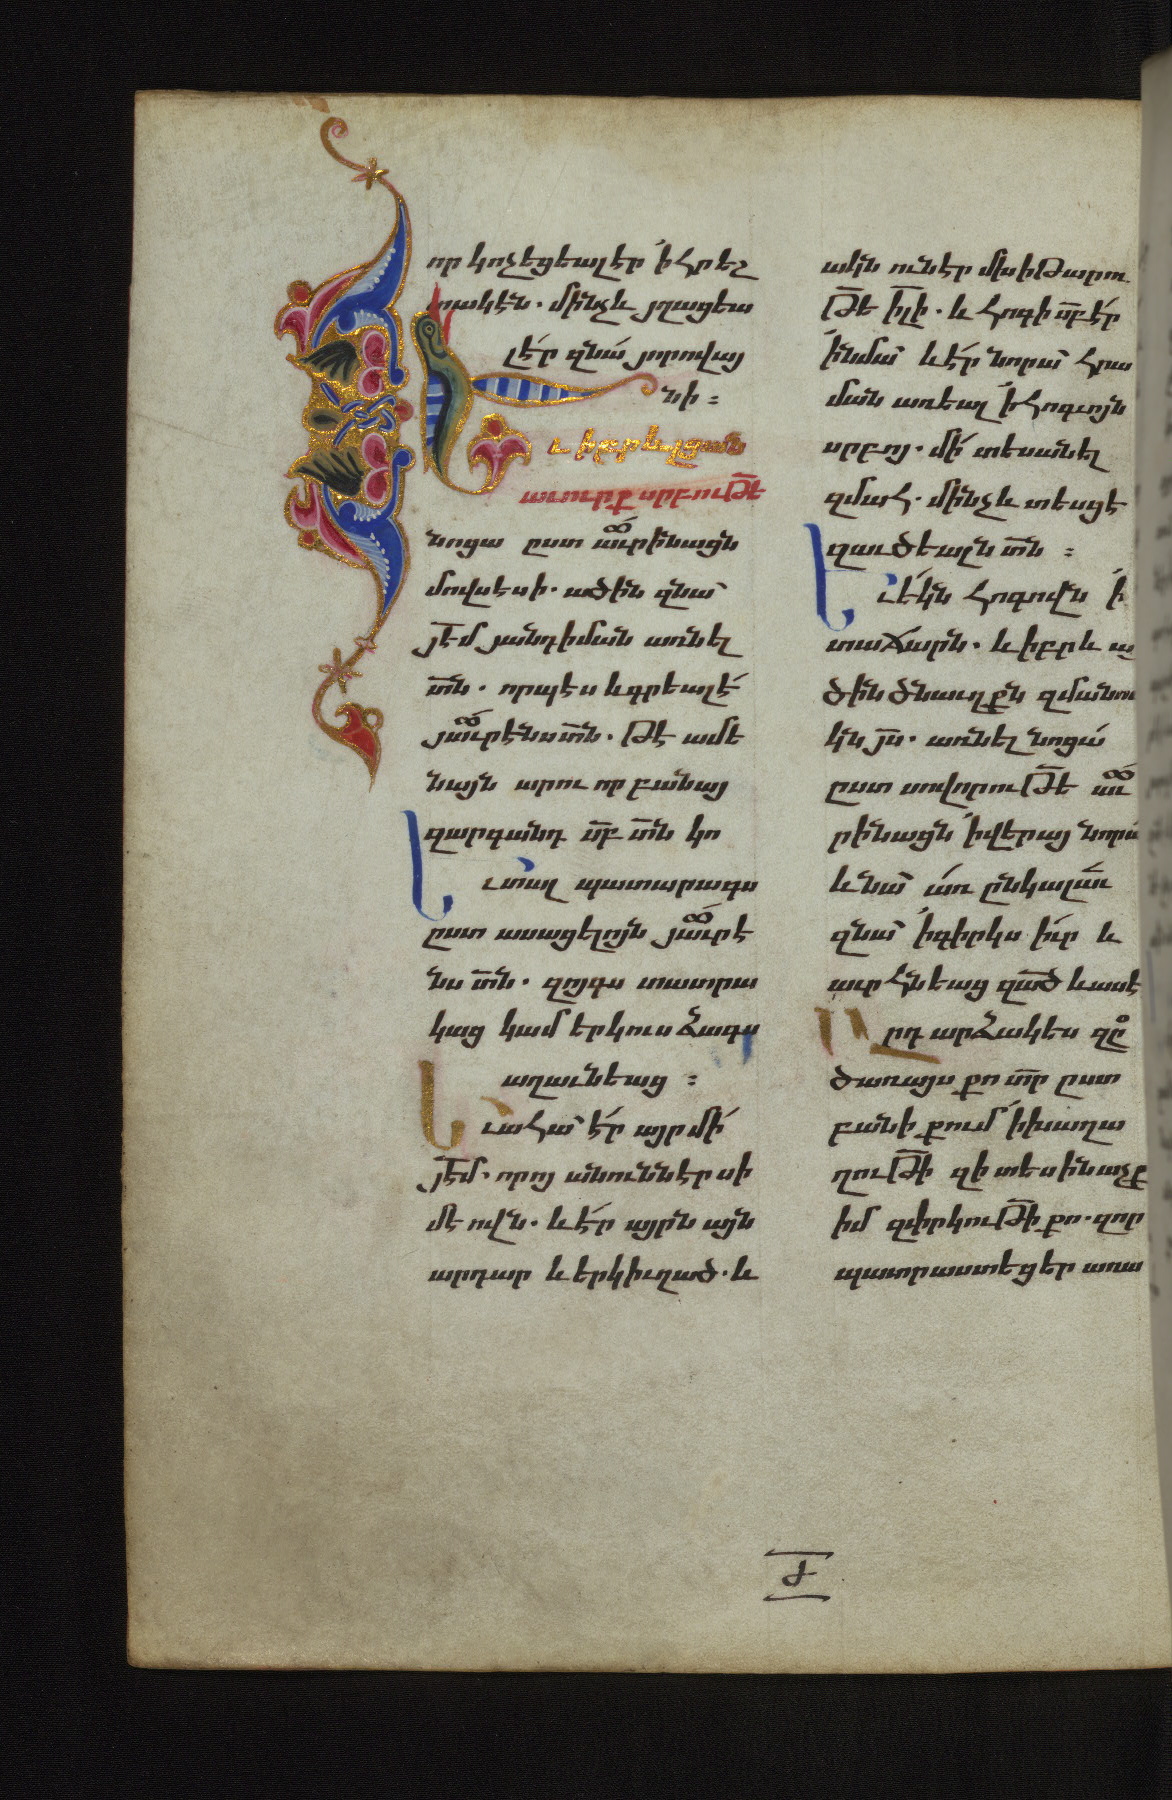 որ կոչեցեալ էր ՛ի հրեշ
տակէն . մինչև յղացեա
լէր զնա՛ յորովայ
նի ։
ւ իբրև լցան
աւուրք սրբու թ̅ե
նոցա ըստ ա՞ւրինացն
մովսէսի . ածին զնա՛
յե̅մ յանդիման առնել
տ̅ն . որպէս և գրեալ է՛
յա՞ւրէնս տ̅ն . թէ ամե
նայն արու որ բանայ
զարգանդ ս̅բ տ̅ն կո
Եւ տալ պատարագս
ըստ ասացելոյն յա՞ւրէ
նս տ̅ն . զոյգս տատրա
կաց կամ երկուս ձագս
աղաւնեաց ։
Եւ ահա՛ էր այր մի՛
յե̅մ . որոյ անուն էր սի
մէովն . և է՛ր այրն այն
արդար և երկիւղած . և
ակն ունէր մխիթարու
թ̅ե ի̅լի . և հոգի ս̅բ է՛ր
՛ի նմա՛ և է՛ր նորա՛ հրա
ման առեալ ՛ի հոգւոյն
սրբոյ . մի՛ տեսանել
զմահ . մինչև տեսցէ
զաւծեալն տ̅ն ։
Եւ ե՛կն հոգովն ՛ի
տաճարն . և իբրև ա
ծին ծնաւղքն զմանու
կն յ̅ս . առնել նոցա՛
ըստ սովորու թ̅ե ա՞ւ
րինացն ՛ի վերայ նորա
և նա՛ ա՛ռ ընկալա՛ւ
զնա՛ ՛ի գիրկս ի՛ւր և
աւրհնեաց զա̅ծ և ասէ
Արդ արձակես զը՟
ծառայս քո տ̅ր ըստ
բանի քում ՛ի խաղա
ղու թ̅ի զի տեսին աչք
իմ զփրկու թ̅ի քո . զոր
պատրաստեցեր առա
Ժ